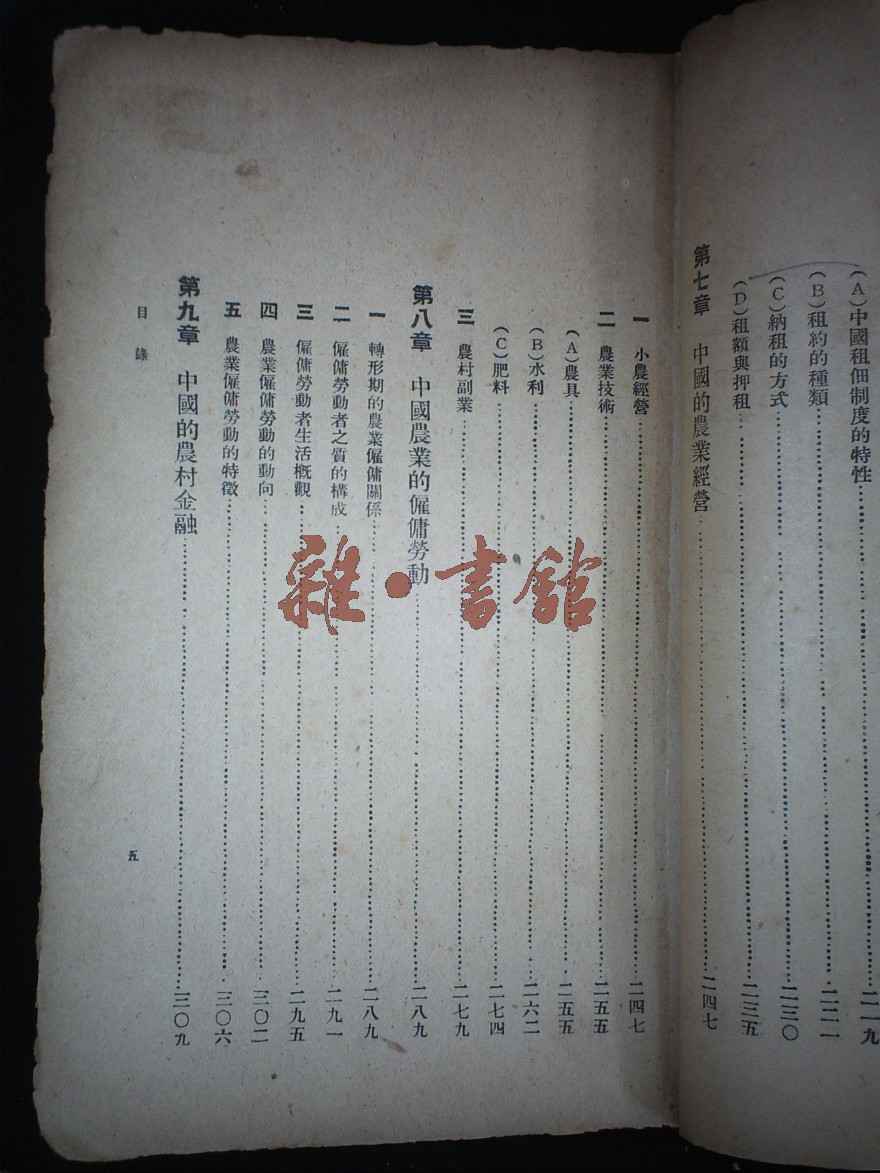 (A)中國租佃制度的特性……二一九
(B)租約的種類……二二一
(C)納租的方式……二三〇
(D)租額與押租……二三五
第七章 中國的農業經營……二四七
一 小農經營……二四七
二 農業技術……二五五
(A)農具……二五五
(B)水利……二六二
(C)肥料……二七四
三 農村副業……二七九
第八章 中國農業的僱傭勞動……二八九
一 轉形期的農業僱傭關係……二八九
二 僱傭勞動者之質的構成……二九一
三 僱傭勞動者生活概觀……二九五
四 農業僱傭勞動的動向……三〇二
五 農業僱傭勞動的特徵……三〇六
第九章 中國的農村金融……三〇九
目錄
五
雜·書館